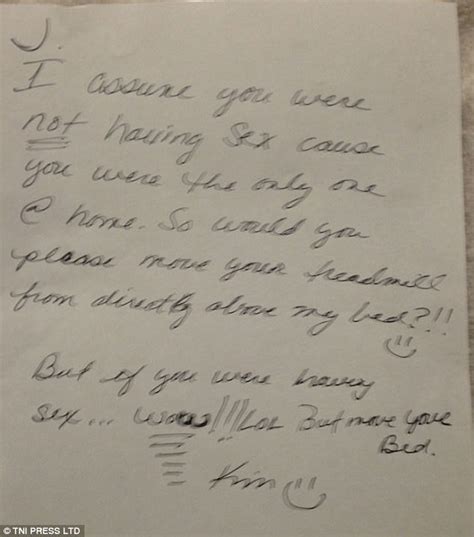 J.
I assume you were
not having sex cause
you were the only one
@ home. So would you
please move your treadmill
from directly above my bed?!!
But if you were having
sex... wow!!! Lol But move your
Bed.
Kim
© TNI PRESS LTD